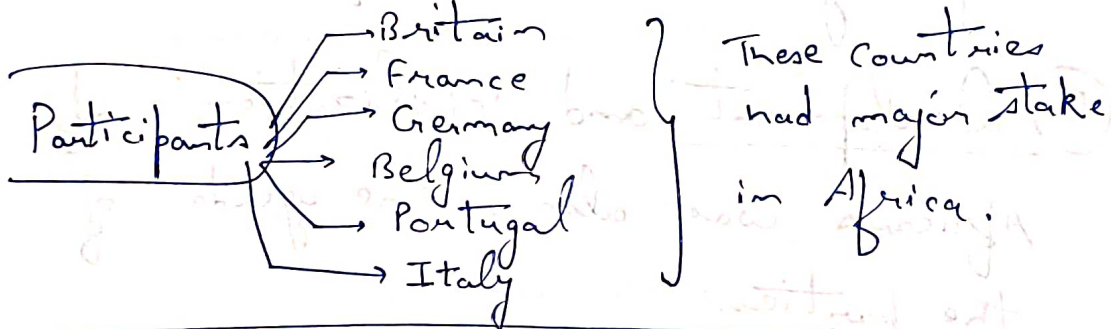 Participants
Britain
France
Germany
Belgium
Portugal
Italy
These countries
had major stake
in Africa.